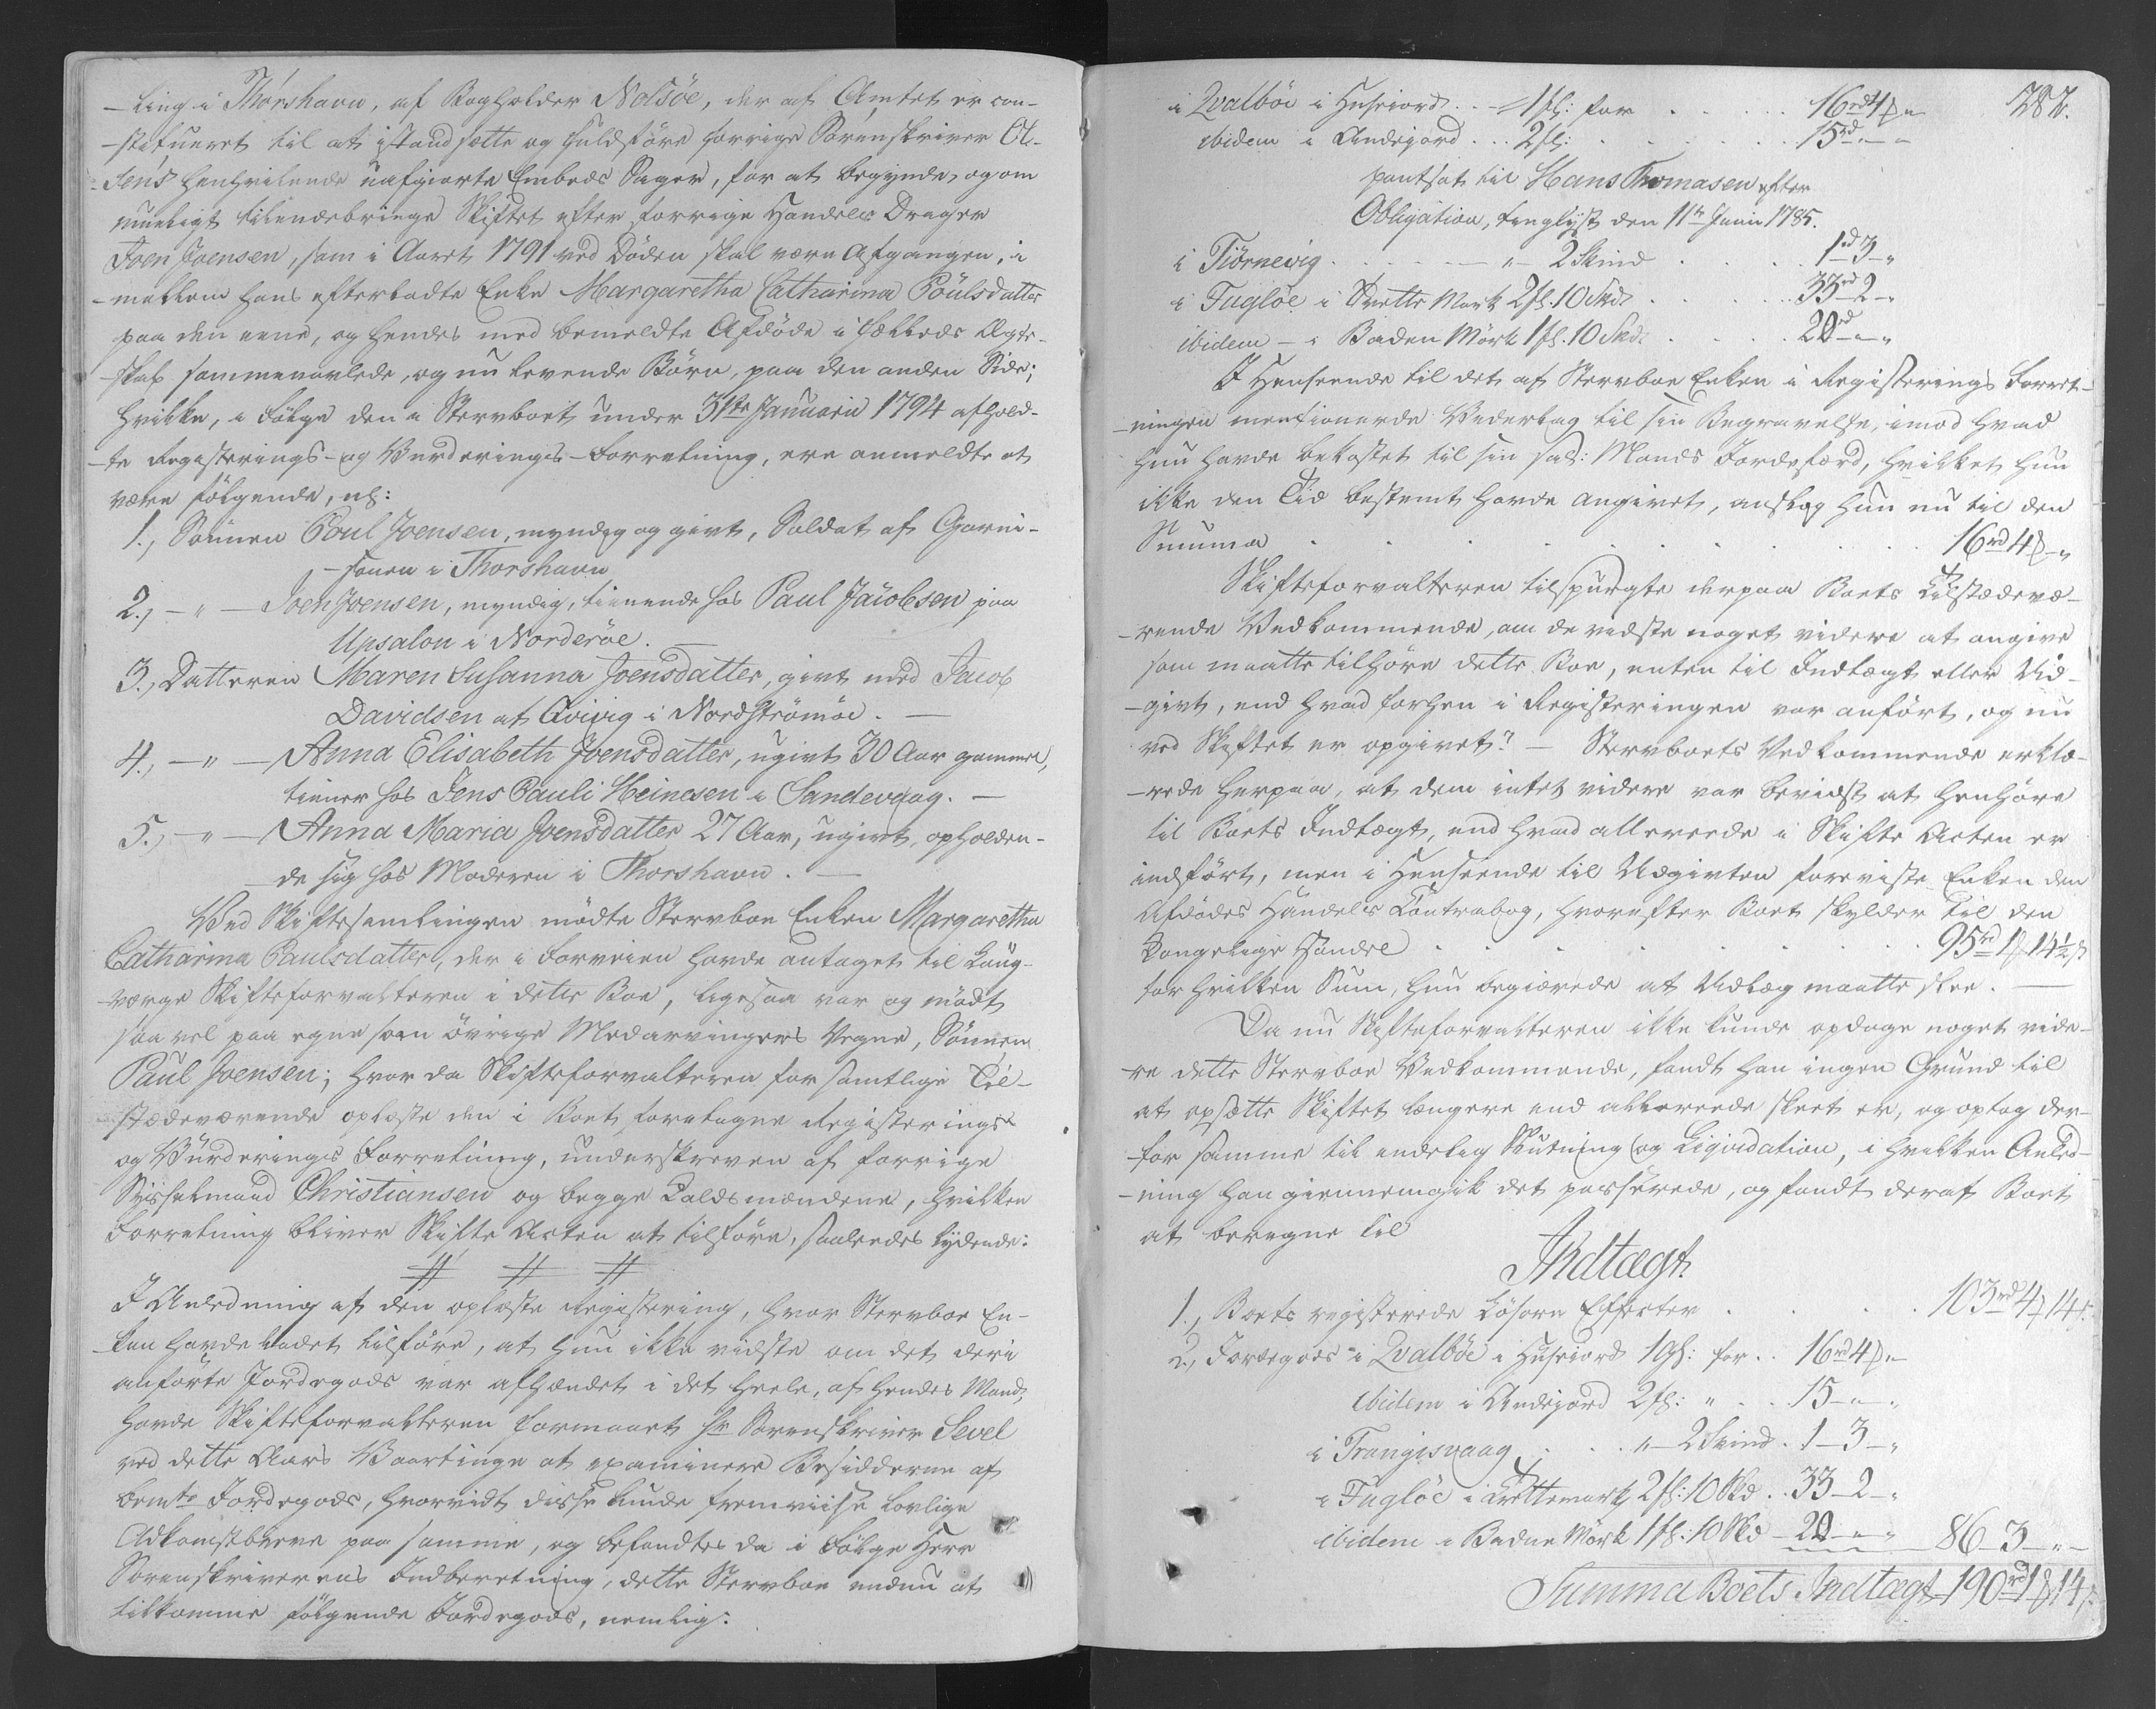 -ling i Thorshavn, af Bogholder Nolsöe, der af Amtet er con-
-stitueret til at istandsætte og fuldføre forrige Sorenskriver Ol-
-sens henhvilende uafgiorte Embeds Sager, for at begynde, og om
mueligt tilendebringe Skiftet efter forrige Handels Drager
Joen Joensen, som i Aaret 1791 ved Döden skal være Afgangen, i-
-mellem hans efterladte Enke Margaretha Catharina Poulsdatter
paa den eene, og hendes med bemeldte Afdöde i fælleds Ægte-
-skab sammenavlede, og nu levende Börn, paa den anden Side;
hvilke, i Fölge den i Stervboet under 31te Januarii 1794 afhold-
-te Registerings- og Vurderings-Forretning, ere anmeldte at
være fölgende, nl:
1., Sönnen Poul Joensen, myndig og givt, Soldat af Garni-
-sonen i Thorshavn
2., -"- Joen Joensen, myndig, tienende hos Paul Jacobsen paa
Upsalon i Norderöe. -
3., Datteren Maren Susanna Joensdatter, givt med Jacob
Davidsen at Qvivig i Nordströmöe. -
4., -"- Anna Elisabeth Joensdatter, ugivt 30 Aar gammel,
tiener hos Jens Pauli Heinesen i Sandevaag. -
5., -"- Anna Maria Joensdatter 27 Aar, ugivt, opholden-
de sig hos Moderen i Thorshavn. -
Ved Skiftesamlingen mödte Stervboe Enken Margaretha
Catharina Paulsdatter, der i Forveien havde antaget til Laug-
værge Skifteforvalteren i dette Boe, ligesaa var og mödt
saa vel paa egne som övrige Medarvingers Vegne, Sönnen
Paul Joensen; hvor da Skifteforvalteren for samtlige Til-
stædeværende oplæste den i Boet foretagne Registerings
og Vurderings Forretning, underskreven af forrige
Sysselmand Christiansen og begge Laldsmændene, hvilken
Forretning bliver Skifte Acten at tilföre, saaledes lydende:
# # #
I Anledning af den oplæste Registering, hvor Stervboe En-
ken havde ladet tilföre, at hun ikke vidste om det deri
anförte Jordegods var afhændet i det heele, af hendes Mand,
havde Skifteforvalteren formaaet Hr Sorenskriver Sevel
ved dette Aars Vaartinge at examinere Besidderne af
bemte Jordegods, hvorvidt disse kunde fremviise lovlige
Adkomstbreve paa samme, og befandtes da i Fölge Herr
Sorenskriverens Indberetning, dette Stervboe endnu at
tilkomme fölgende Jordegods, nemlig:
282.
i Qvalböe i Huseiord . . - 1 gl: for . . . 16rd 4ß "
ibidem i Andejord . . . 2 gl: . . . 15rd - " -
pantsat til Hans Thomasen efter
Obligation, tinglyst den 11te Junii 1785.
i Tiörnevig . . . - " - 2 Skind . . . 1rd 3 - "
i Fuglöe i Mark 2 gl. 10 Skd . . . 33rd 2 - "
ibidem - i Baden Mörk 1 gl. 10 Skd: . . . 20rd - "
I Henseende til det af Stervboe Enken i Registerings Forret-
-ningen mentionerede Vederlag til sin Begravelse, imod hvad
hun havde bekostet til sin sal: Mands Jordefærd, hvilket hun
ikke den Tid bestemt havde angivet, anslog hun nu til den
Summa . . . 16rd 4ß - "
Skifteforvalteren tilspurgte derpaa Boets Tilstædevæ-
-rende Vedkommende, om de vidste noget videre at angive
som maatte tilhöre dette Boe, enten til Indtægt eller Ud-
-givt, end hvad forhen i Registeringen var anfört, og nu
ved Skiftet er opgivet? - Stervboets Vedkommende erklæ-
-rede herpaa, at dem intet videre var bevidst at henhöre
til Boets Indtægt, end hvad allereede i Skifte Acten er
indfört, men i Henseende til Udgivten foreviste Enken den
Afdödes Handels Contrabog, hvorefter Boet skylder til den
Kongelige Handel . . . 95rd 1ß 14½ß
for hvilken Sum, hun begiærede at Udlæg maatte skee. -
Da nu Skifteforvalteren ikke kunde opdage noget vide-
-re dette Stervboe Vedkommende, fandt han ingen Grund til
at opsætte Skiftet længere end allereede skeet er, og optog der-
for samme til endelig Slutning og Liqvidation, i hvilken Anled-
-ning han giennemgik det passerede, og fandt deraf Boet
at beregne til
Indtægt.
1., Boets registerede Lösöre Effecter . . . 103rd 4ß 14ß.
2., Jordegods i Qvalböe i Huseiord 1 gl: for . . 16rd 4ß "
ibidem i Andejord 2 gl: " . . 15 - " - "
i Trangisvaag . . . " - 2 Skind . 1 - 3 - "
i Fuglöe i 2 gl: 10 Skd . . 33 - 2 - "
ibidem i Baden Mörk 1 gl: 10 Skd - 20 - " - " 86 - 3 - " -
Summa Boets Indtægt 190rd 1ß 14ß